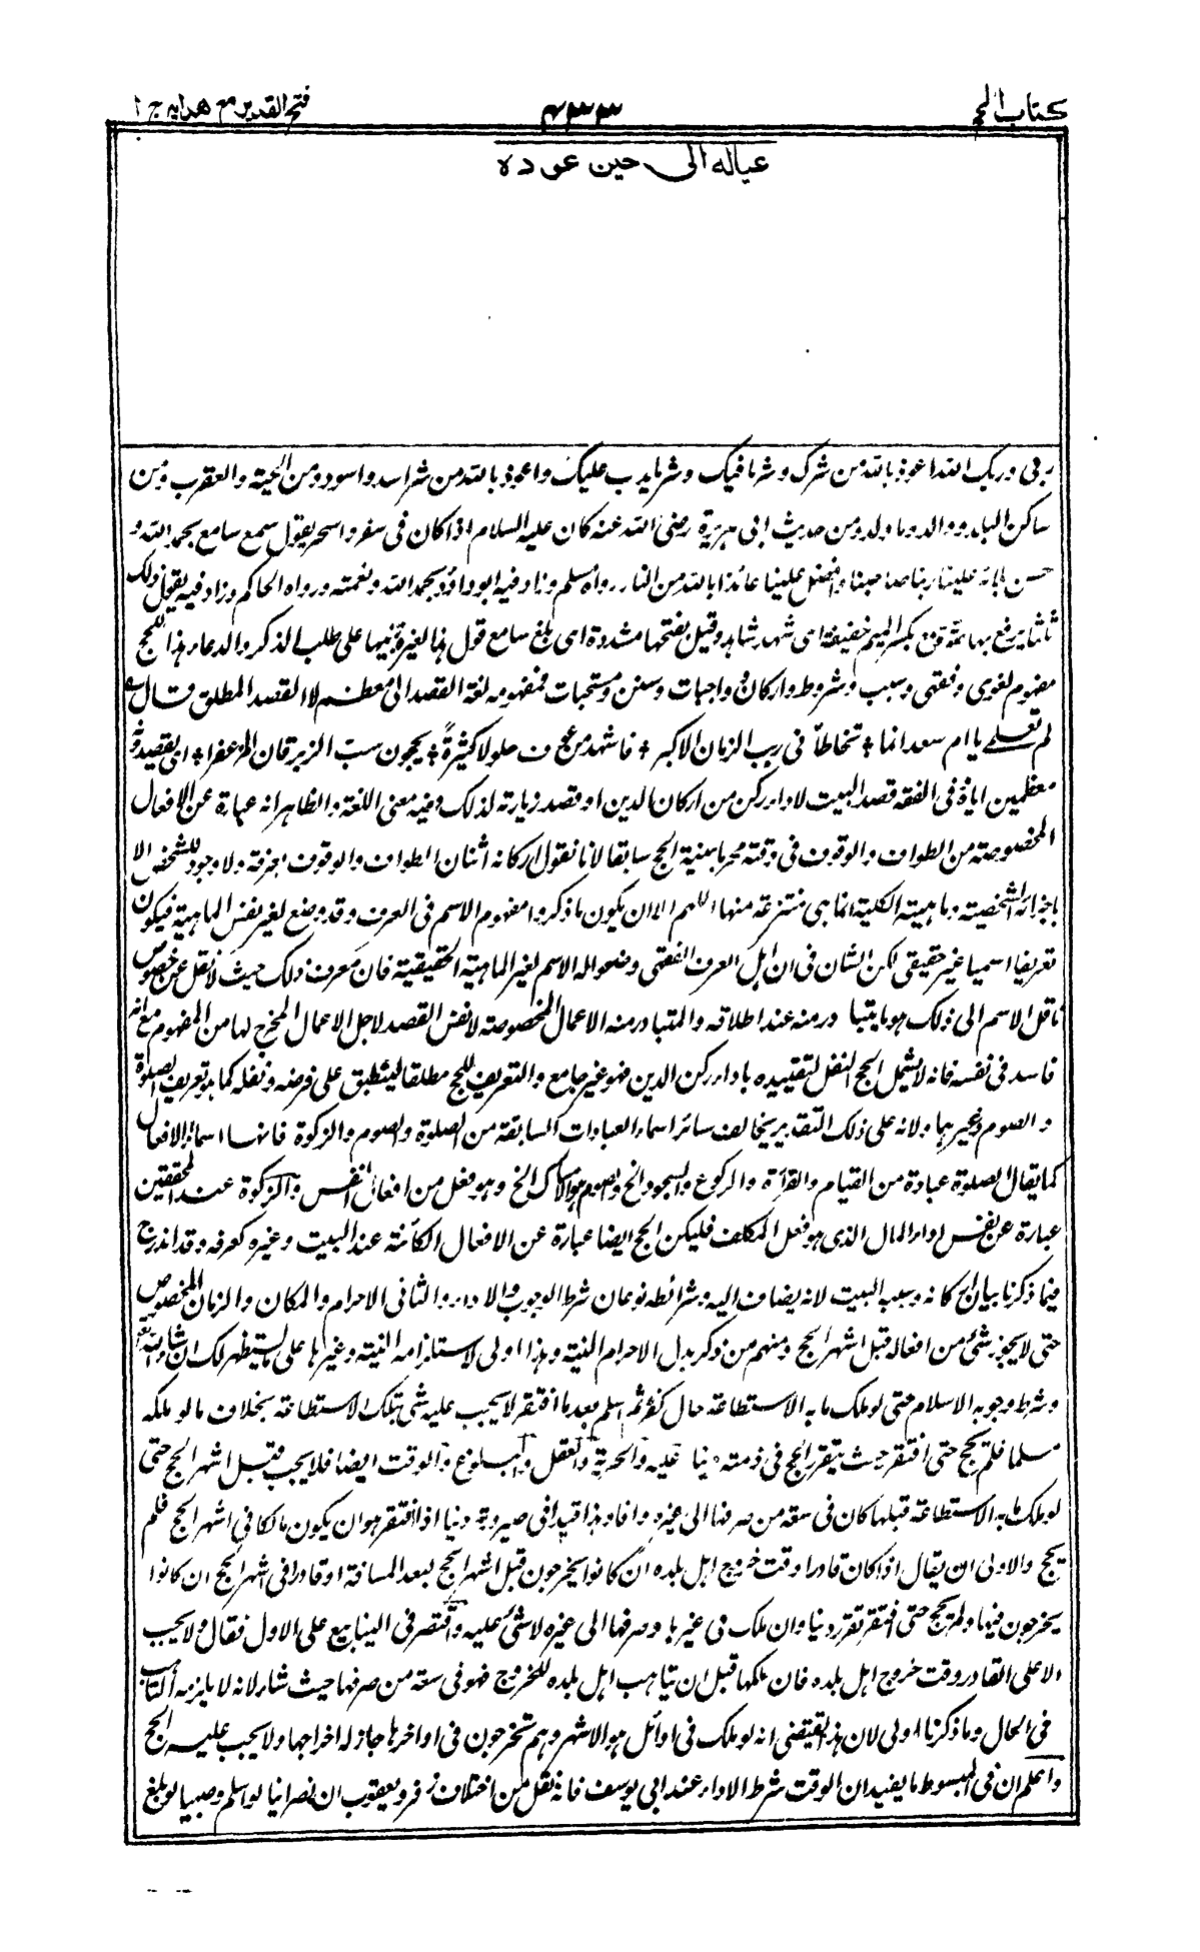 كتاب الحج
٤٣٣
فتح القدير مع هدايه ج ا
عياله الى حين عوده
ربى وربك الله اعوذ بالله من شرك وشر ما فيك وشر ما يدب عليك واعوذ بالله من شر اسد واسود ومن الحية والعقرب ومن
ساكن البلد ووالد وما ولد ومن حديث ابى هريرة رضى الله عنه كان عليه السلام اذا كان فى سفر واسحر يقول سمع سامع بحمد الله و
حسن بلائه علينا ربنا صاحبنا وافضل علينا عائذا بالله من النار رواه مسلم وزاد فيه ابو داؤد بحمد الله ونعمته ورواه الحاكم وزاد فيه يقول ذلك
ثلثا يرفع بها صوته بكسر الميم خفيفة اى شهد شاهد وقيل بفتحها مشددة اى بلغ سامع قول هذا لغيره تنبيها على طلب الذكر والدعاء هذا للحج
مفهوم لغوى وفقهى وسبب وشروط واركان وواجبات وسنن ومستحبات فمفهومه لغة القصد الى معظم لا القصد المطلق قال
لم تعلمى يا ام سعد انما * تخاطأ فى ريب الزمان الاكبر * فاشهد من عوف حلولا كثيرة * يحجون سب الزبرقان المزعفرا * اى يقصدونه
معظمين اياه وفى الفقه قصد البيت لاداء ركن من اركان الدين او قصد زيارته لذلك ففيه معنى اللغة والظاهر انه عبارة عن الافعال
المخصوصة من الطواف والوقوف فى وقته محرما بنية الحج سابقا لانا نقول اركانه اثنان الطواف والوقوف بعرفة ولا وجود للشخص الا
باجزائه الشخصية وماهيته الكلية انما هى منتزعة منها اللهم الا ان يكون ما ذكروا مفهوم الاسم فى العرف وقد وضع لغير نفس الماهية فيكون
تعريفا اسميا غير حقيقى لكن الشان فى ان اهل العرف الفقهى وضعوا له الاسم لغير الماهية الحقيقية فان معرف ذلك حيث لا نقل عن خصوص
ناقل الاسم الى ذلك هو ما يتبادر منه عند اطلاقه والمتبادر منه الاعمال المخصوصة لا نفس القصد لاجل الاعمال المخرج لها من المفهوم مع انه
فاسد فى نفسه فانه لا يشمل الحج النفل لتقييده باداء ركن الدين فهو غير جامع والتعريف للحج مطلقا لينطبق على فرضه ونفله كما هو تعريف الصلوة
والصوم وغيرها ولانه على ذلك التقدير يخالف سائر اسماء العبادات السابقة من الصلوة والصوم والزكوة فانها اسماء للافعال
كما يقال الصلوة عبادة من القيام والقراءة والركوع والسجود الخ والصوم هو الامساك الخ وهو فعل من افعال النفس والزكوة عند المحققين
عبارة عن نفس اداء المال الذى هو فعل المكلف فليكن الحج ايضا عبارة عن الافعال الكائنة عند البيت وغيره كعرفه وقد اندرج
فيما ذكرنا بيان اركانه وسببه البيت لانه يضاف اليه وشرائطه نوعان شرط الوجوب والاداء والثانى الاحرام والمكان والزمان المخصوص
حتى لا يجوز شئ من افعاله قبل اشهر الحج ومنهم من ذكر بدل الاحرام النية وهذا اولى لاستلزامه النية وغيرها على ما يستظهر لك ان شاء الله تعالى
وشرط وجوبه الاسلام حتى لو ملك ما به الاستطاعة حال كفره ثم اسلم بعد ما افتقر لا يجب عليه شى بتلك الاستطاعة بخلاف ما لو ملكه
مسلما فلم يحج حتى افتقر حيث يتقرر الحج فى ذمته دينا عليه والحرية والعقل والبلوغ والوقت ايضا فلا يجب قبل اشهر الحج حتى
لو ملك ما به الاستطاعة قبلها كان فى سعة من صرفها الى غيره وافاد هذا قيدا فى صيرورته دينا اذا افتقر هو ان يكون مالكا فى اشهر الحج فلم
يحج والاولى ان يقال اذا كان قادرا وقت خروج اهل بلده ان كانوا يخرجون قبل اشهر الحج لبعد المسافة او قادرا فى اشهر الحج ان كانوا
يخرجون فيها ولم يحج حتى افتقر تقرر دينا وان ملك فى غيرها وصرفها الى غيره لا شئ عليه واقتصر فى الينابيع على الاول فقال ولا يجب
الا على القادر وقت خروج اهل بلده فان ملكها قبل ان يتاهب اهل بلده للخروج فهو فى سعة من صرفها حيث شاء لانه لا يلزمه التاهب
فى الحال وما ذكرنا اولى لان هذا يقتضى انه لو ملك فى اوائل الاشهر وهم يخرجون فى اواخرها جاز له اخراجها ولا يجب عليه الحج
واعلم ان فى المبسوط ما يفيد ان الوقت شرط الاداء عند ابى يوسف فانه نقل من اختلاف زفر ويعقوب ان نصرانيا لو اسلم وصبيا لو بلغ